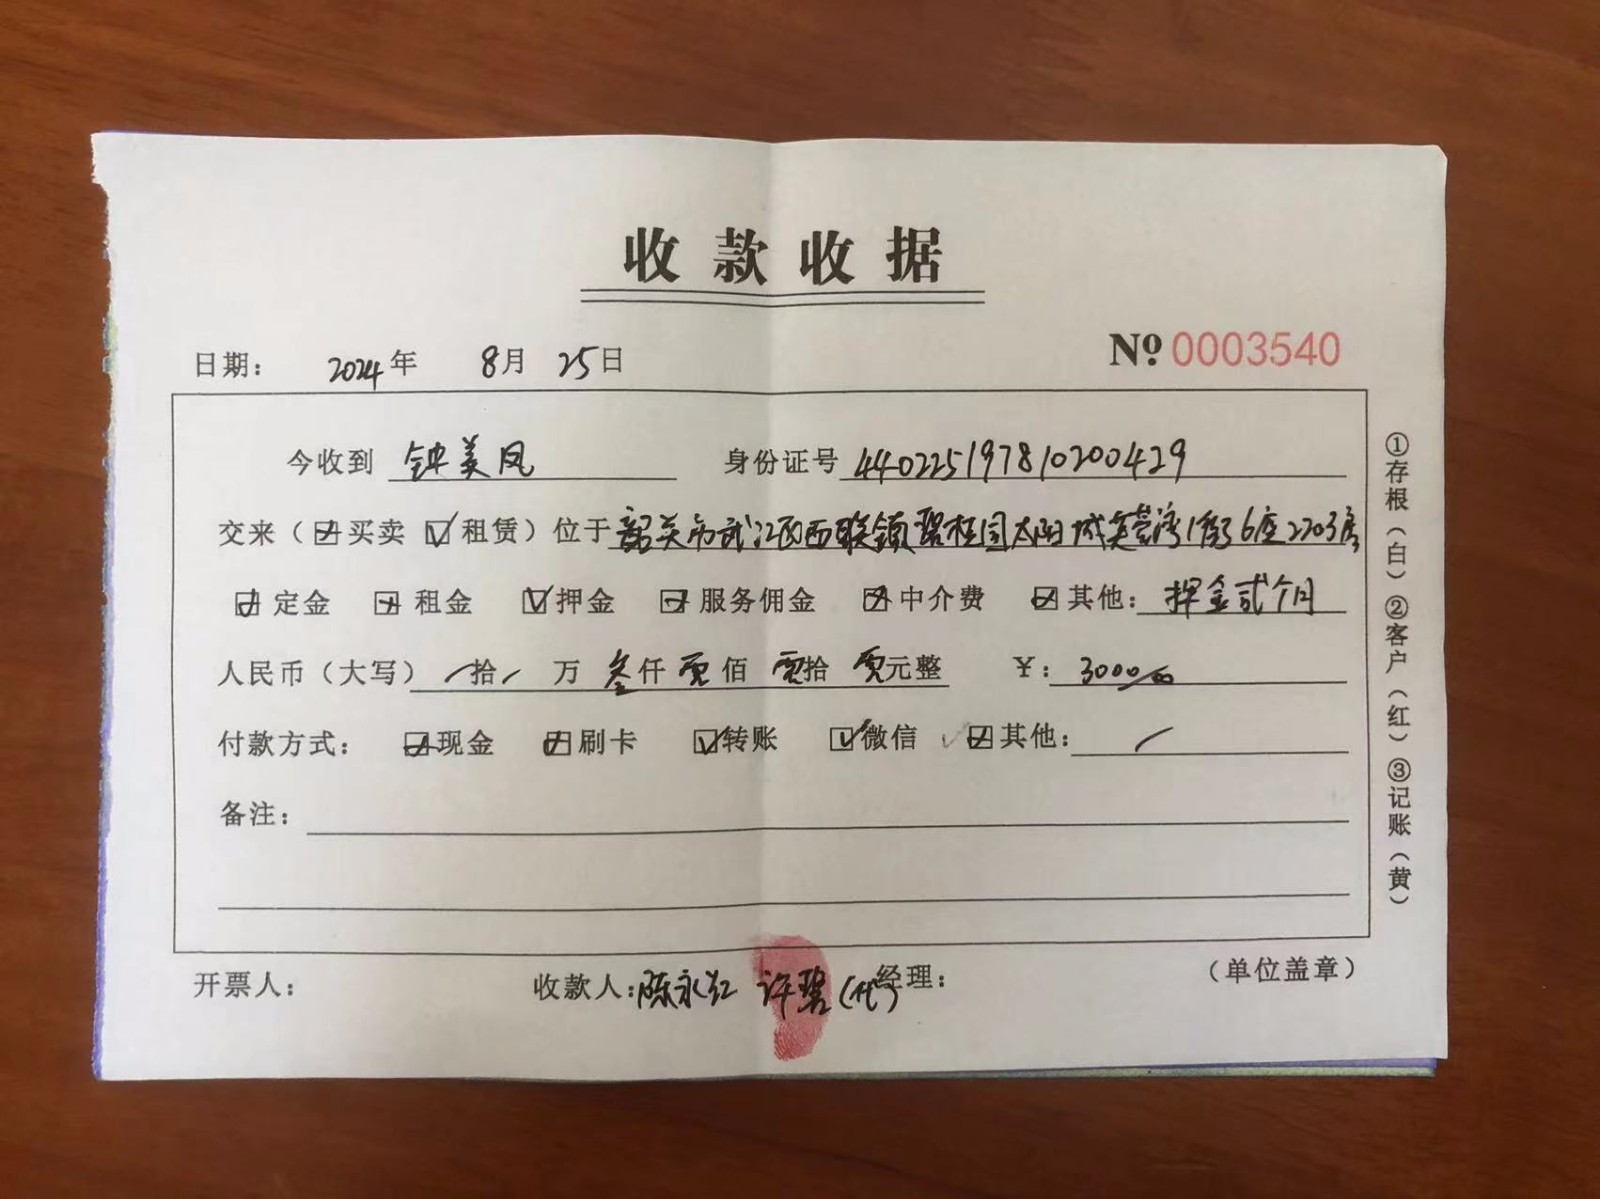 收款收据
日期： 2024年 8月 25日 № 0003540
今收到 钟美凤 身份证号 440225197810200429
交来（☑买卖 ☑租赁）位于 韶关市武江区西联镇碧桂园太阳城芙蓉湾1街6座2703房
☑定金 ☑租金 ☑押金 ☑服务佣金 ☑中介费 ☑其他：押金贰个月
人民币（大写） /拾/ 万 叁仟 零佰 零拾 零元整 ¥：3000/00
付款方式： ☑现金 ☑刷卡 ☑转账 ☑微信 ☑其他： /
备注：
开票人： 收款人：陈永红 许碧(代) 经理： （单位盖章）
①存根（白）②客户（红）③记账（黄）